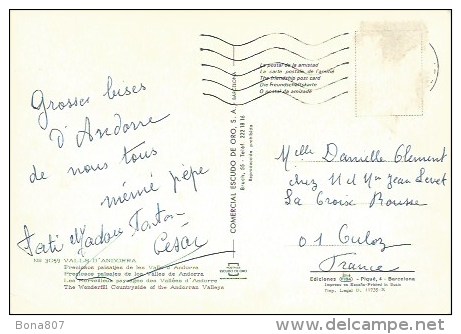 Grosses bises
D'Andorre
de nous tous
mémé pépé
Tati Madou Tonton
César
Nº 3059 VALLS D'ANDORRA
Preciosos paisatjes de les Valls d'Andorra
Preciosos paisajes de los Valles de Andorra
Les merveilleux paysages des Vallées d'Andorre
The Wonderfull Countryside of the Andorran Valleys
COMERCIAL ESCUDO DE ORO, S. A.
Bruch, 55 - Teléf. 222 18 16
Reproducción prohibida
ANDORRA
POSTALES
ESCUDO DE ORO
La postal de la amistad
La carte postale de l'amitié
The friendship post card
Die Freundschaftskarte
O postal da amizade
Melle Danielle Clement
chez M et Mme Jean
La Croix Rousse
01 Culoz
France
Ediciones FISA - Piqué, 4 - Barcelona
Impreso en España-Printed in Spain
Dep. Legal B. 11735
Bona807